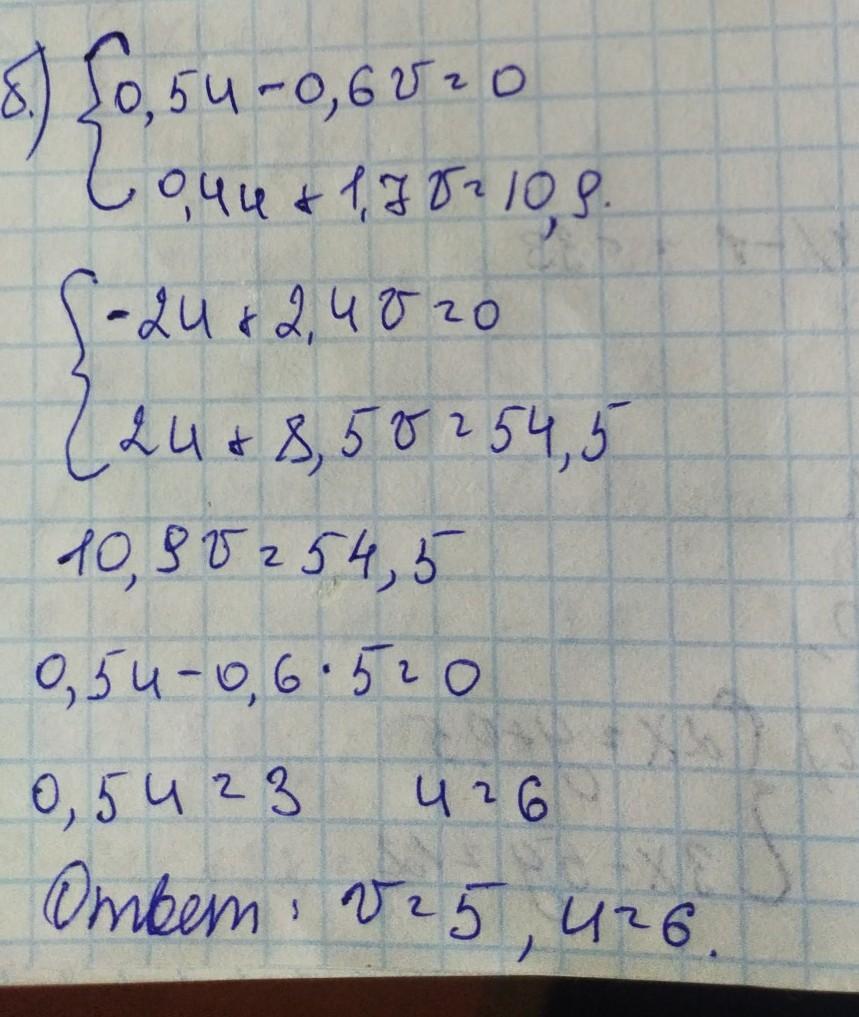 б.) 0,5u - 0,6v = 0
0,4u + 1,7v = 10,9.
-2u + 2,4v = 0
2u + 8,5v = 54,5
10,9v = 54,5
0,5u - 0,6 · 5 = 0
0,5u = 3 u = 6
Ответ: v = 5, u = 6.